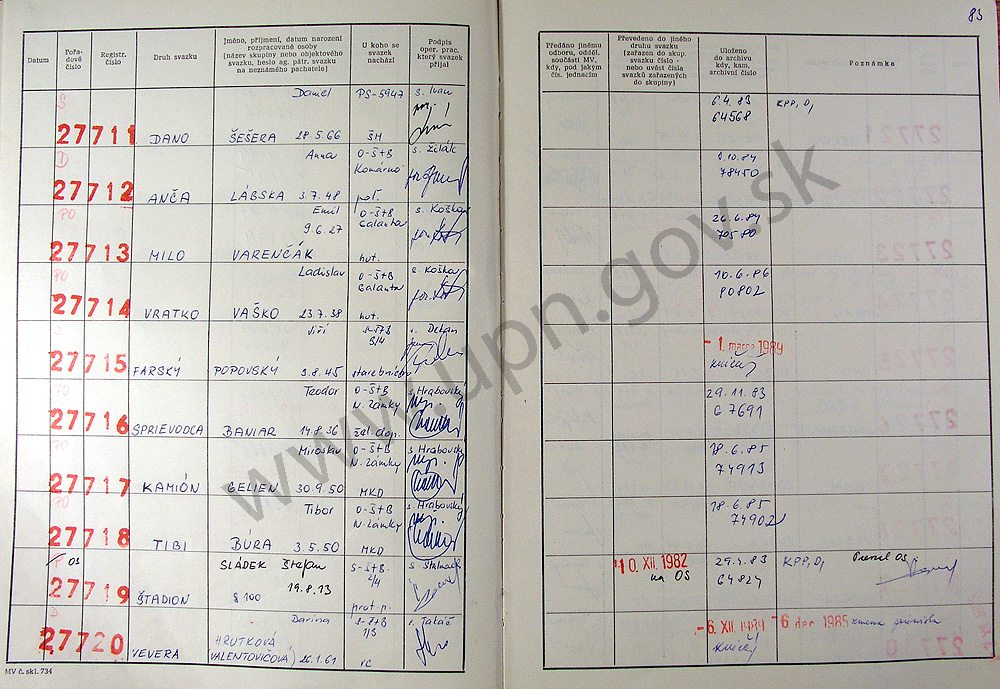 83
Datum
Pořa-
dové
číslo
Registr.
číslo
Druh svazku
Jméno, příjmení, datum narození
rozpracované osoby
(název skupiny nebo objektového
svazku, heslo ag. pátr. svazku
na neznámého pachatele)
U koho se
svazek
nachází
Podpis
oper. prac.
který svazek
přijal
Předáno jinému
odboru, odděl.
součásti MV,
kdy, pod jakým
čís. jednacím
Převedeno do jiného
druhu svazku
(zařazen do skup.
svazku číslo -
nebo uvést čísla
svazků zařazených
do skupiny)
Uloženo
do archivu
kdy, kam,
archivní číslo
Poznámka
S
Daniel PS-5947 s. Ivan
27711 DANO ŠEŠERA 28.5.66 ŠH
6.4.83 KPP, D,
64568
D
Anna O-Š+B s. Žilák
Komárno
27712 ANČA LÁBSKA 3.7.48 pol.
78450
PO
Emil O-Š+B s. Koška
9.6.27 Galanta
27713 MILO VARENČÁK hut.
26.6.84
70580
PO
Ladislav O-Š+B s. Koška
Galanta
27714 VRATKO VAŠKO 23.7.38 hut.
10.6.86
80802
S
Jiří S-Š+B
27715 FARSKÝ POPOVSKÝ 3.8.45
- 1. marca 1989
PO
Teodor O-Š+B s. Hrabovský
N. Zámky
27716 SPRIEVODCA BANIAR 14.8.36 žel. dop.
29.11.83
C 7691
PO
Miroslav O-Š+B s. Hrabovský
N. Zámky
27717 KAMIÓN GELIEN 30.9.50 MKD
18.6.85
74913
PO
Tibor O-Š+B s. Hrabovský
N. Zámky
27718 TIBI BÚRA 3.5.50 MKD
18.6.85
74902
OS
SLÁDEK Štefan S-Š+B.
2/4
19.8.13
27719 ŠTADION § 100 prot. p.
10. XII. 1982
na OS
29.4.83 KPP, D,
64824
D
Darina S-Š+B
27720 VEVERA HRUTKOVÁ
(VALENTOVIČOVÁ) 26.1.61 rc
- 6. XII. 1984 - 6 dec 1985
MV č. skl. 734
www.upn.gov.sk